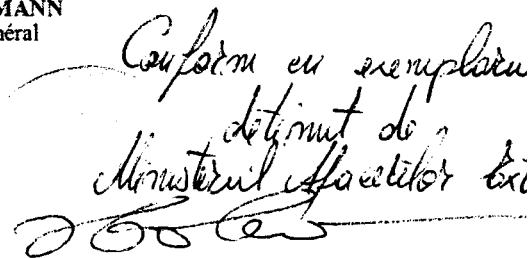 MANN
néral
Conform cu exemplaru
deținut de
Ministerul Afacerilor Ext